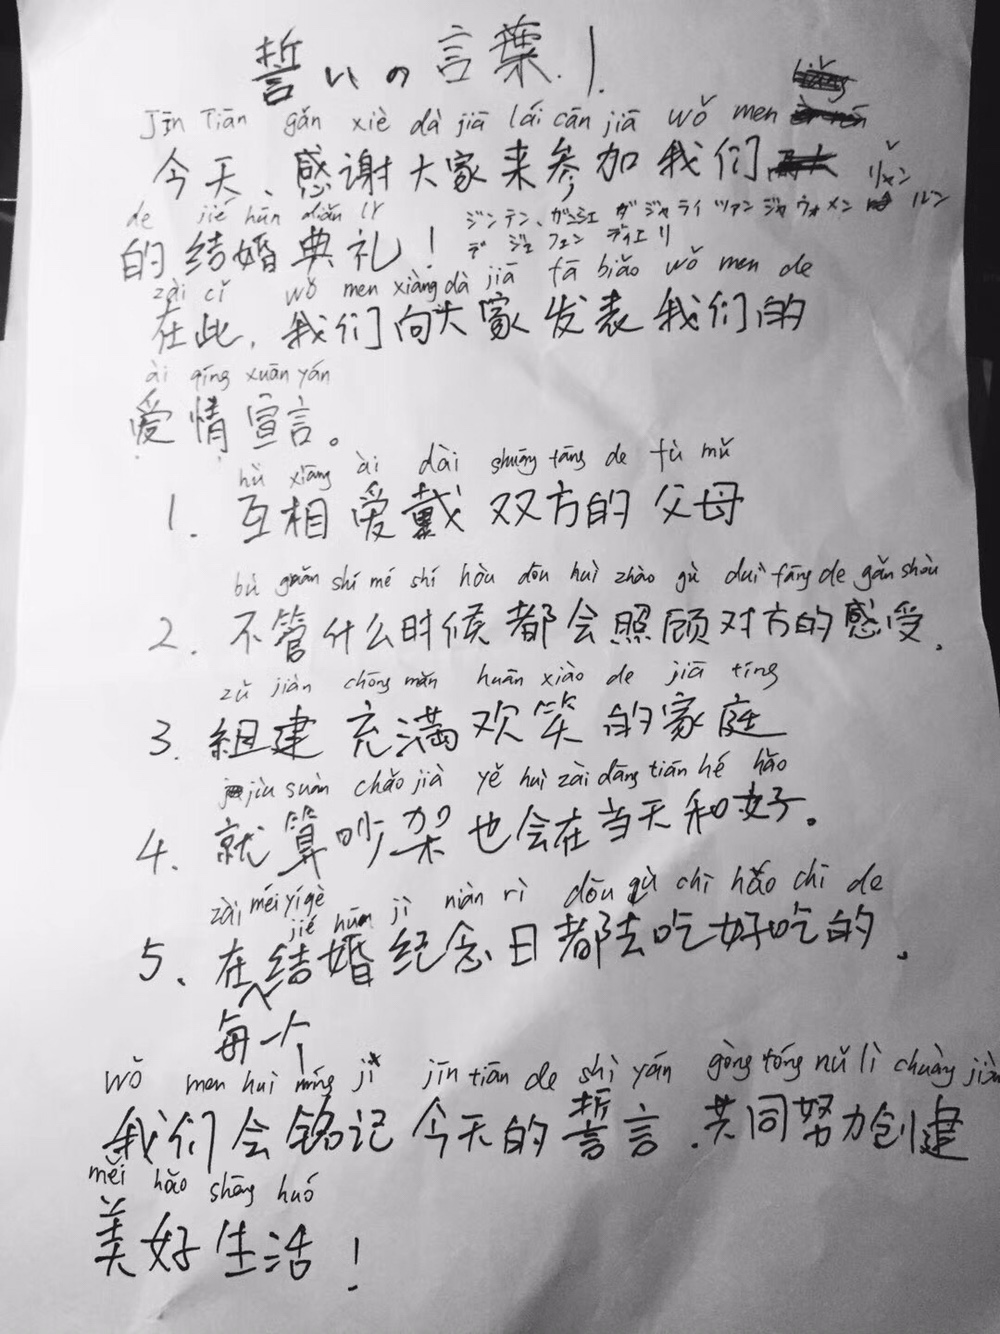 誓いの言葉!
liǎng
Jīn Tiān gǎn xiè dà jiā lái cān jiā wǒ men
今天、感谢大家来参加我们
リャン
de jié hūn diǎn lǐ
ジンテン、ガンシェ ダジャライツァンジャウォメン ルン
的结婚典礼!
デ ジェフェン ディエリ
zài cǐ wǒ men xiàng dà jiā fā biǎo wǒ men de
在此,我们向大家发表我们的
ài qíng xuān yán
爱情宣言。
hù xiāng ài dài shuāng fāng de fù mǔ
1. 互相爱戴双方的父母
bù guǎn shí mé shí hòu dōu huì zhào gù duì fāng de gǎn shòu
2. 不管什么时候都会照顾对方的感受.
zǔ jiàn chōng mǎn huān xiào de jiā tíng
3. 組建充满欢笑的家庭
jiù suàn chǎo jià yě huì zài dāng tiān hé hǎo
4. 就算吵架也会在当天和好。
zài méi yí gè jié hūn jì niàn rì dōu qù chī hǎo chī de
5、在结婚纪念日都去吃好吃的.
每一个
wǒ men huì míng jì jīn tiān de shì yán gòng tóng nǔ lì chuàng jiàn
我们会铭记今天的誓言.共同努力创建
měi hǎo shēng huó
美好生活!